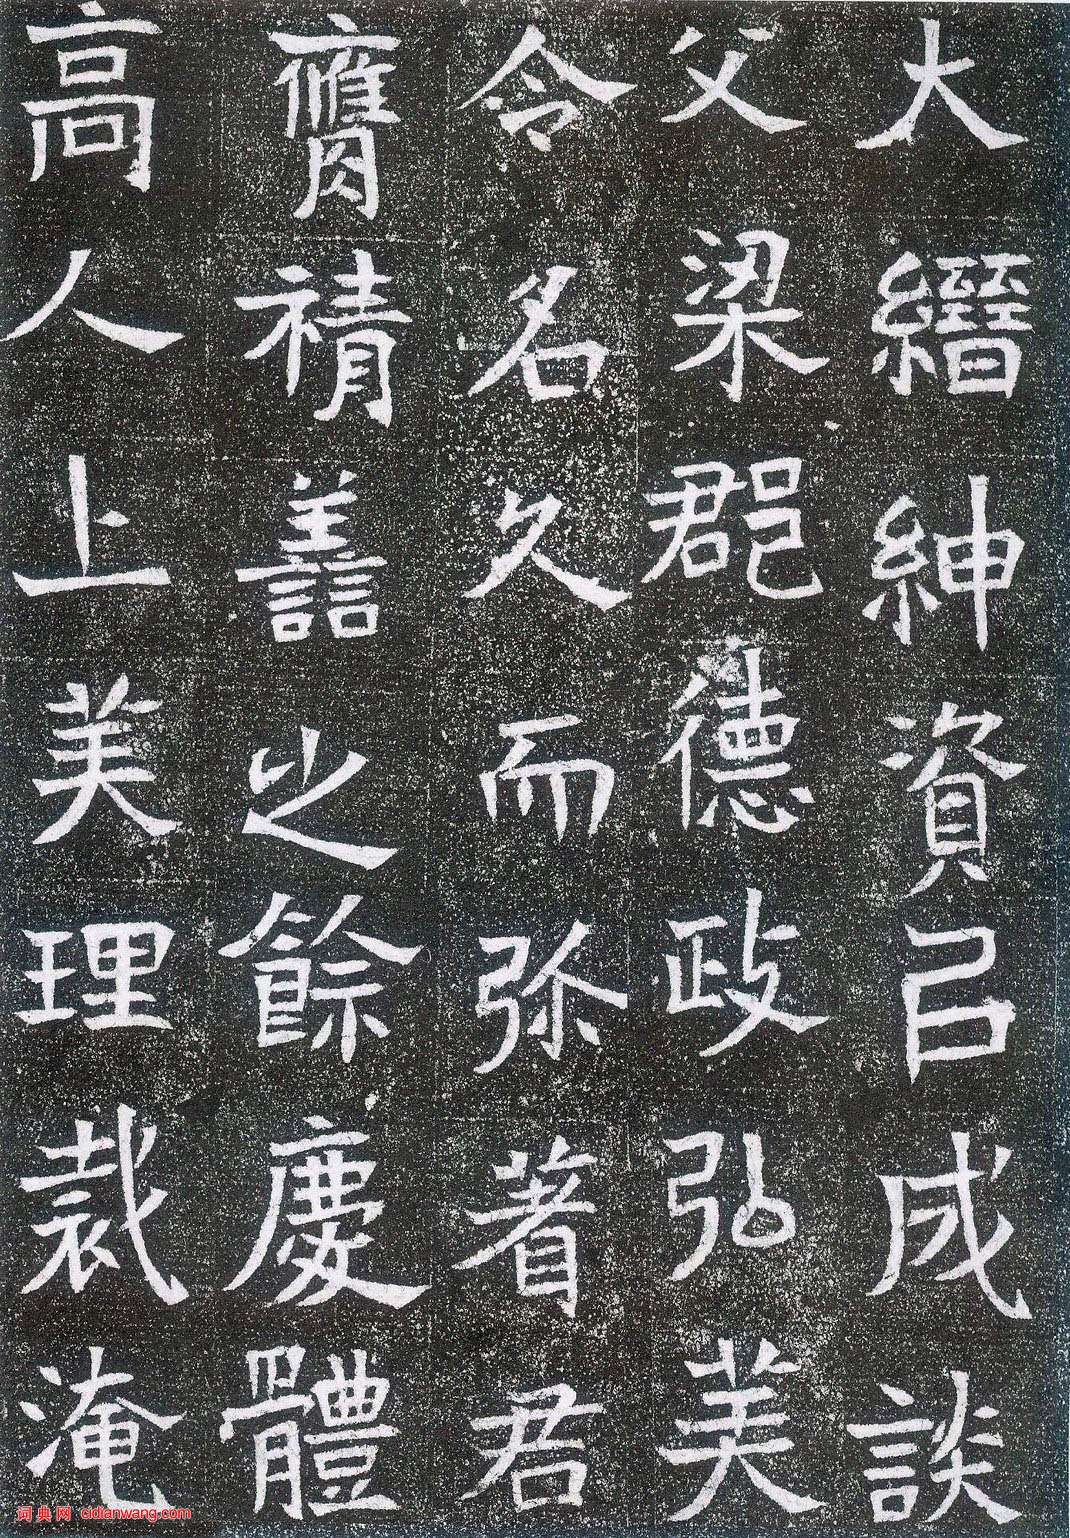 大縉紳資㠯成談
父梁郡德政弘美
令名久而弥著君
膺積譱之餘慶體
高人上美理裁淹
词典网 cidianwang.com